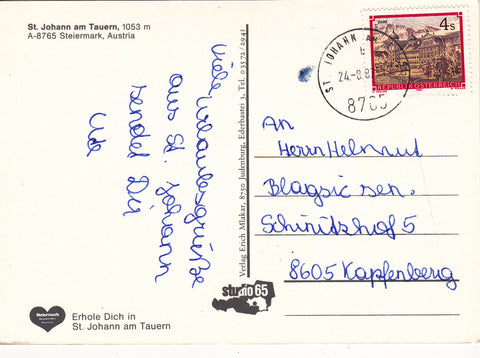 St. Johann am Tauern, 1053 m
A-8765 Steiermark, Austria
Viele Urlaubsgrüße
aus St. Johann
sendet Dir
Ute
Verlag Erich Mlakar, 8750 Judenburg, Ederbastei 3, Tel. 0 35 72 / 29 41
4 S
REPUBLIK ÖSTERREICH
ST. JOHANN AM
24.-8.8
8765
An
Herrn Helmut
Blagsic sen.
Schinitzhof 5
8605 Kapfenberg
studio 65
Steiermark
Erhole Dich in
St. Johann am Tauern